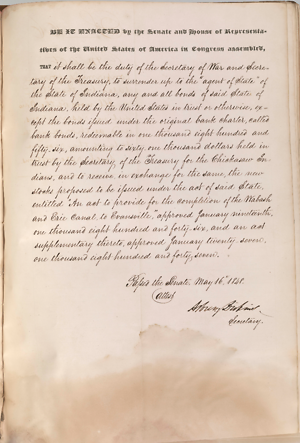 BE IT ENACTED by the Senate and House of Representa-
tives of the United States of America in Congress assembled,
THAT it shall be the duty of the Secretary of War and Secre-
tary of the Treasury, to surrender up to the "agent of State" of
the State of Indiana, any and all bonds of said State of
Indiana, held by the United States in trust or otherwise, ex-
cept the bonds issued under the original bank charter, called
bank bonds, redeemable in one thousand eight hundred and
fifty-six, amounting to sixty one thousand dollars held in
trust by the Secretary of the Treasury for the Chickasaw In-
dians, and to receive in exchange for the same, the new
stocks proposed to be issued under the act of said State,
entitled "An act to provide for the completion of the Wabash
and Erie Canal to Evansville," approved January nineteenth,
one thousand eight hundred and forty-six, and an act
supplementary thereto, approved January twenty-seven,
one thousand eight hundred and forty-seven.
Passed the Senate, May 16,
Attest
Secretary.